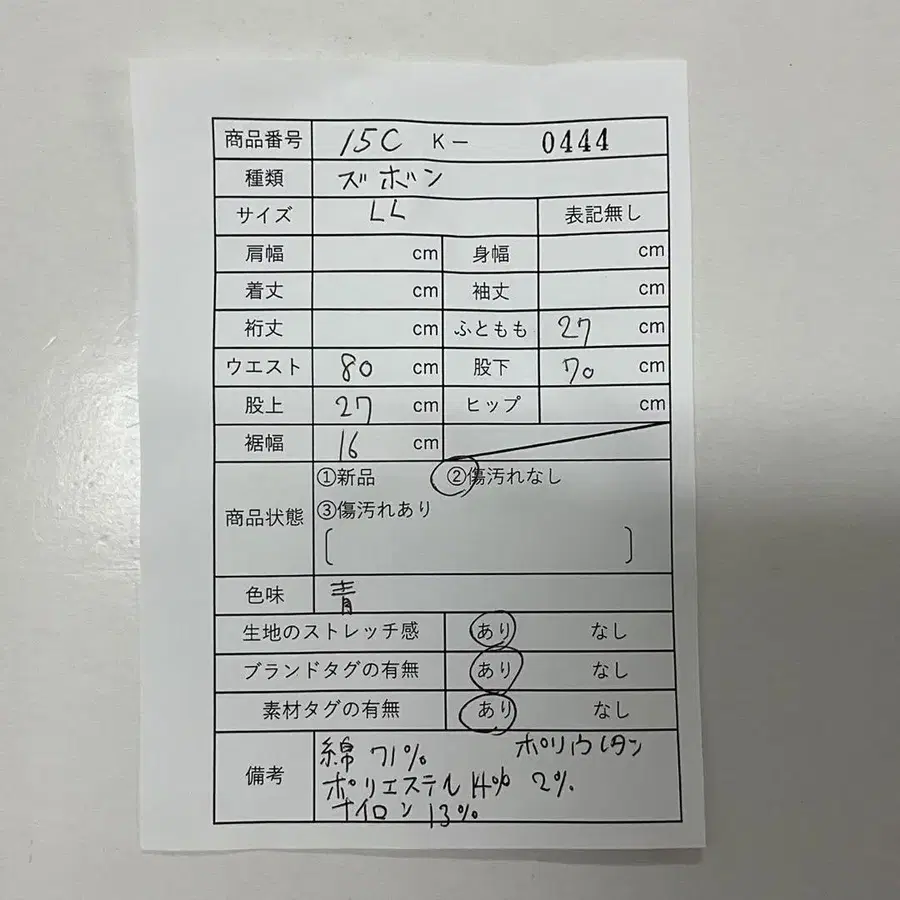 商品番号 15C K- 0444
種類 ズボン
サイズ LL 表記無し
肩幅 cm 身幅 cm
着丈 cm 袖丈 cm
裄丈 cm ふともも 27 cm
ウエスト 80 cm 股下 70 cm
股上 27 cm ヒップ cm
裾幅 16 cm
商品状態 ①新品 ②傷汚れなし
③傷汚れあり
[ ]
色味 青
生地のストレッチ感 あり なし
ブランドタグの有無 あり なし
素材タグの有無 あり なし
備考 綿 71% ポリウレタン
ポリエステル 14% 2%
ナイロン 13%